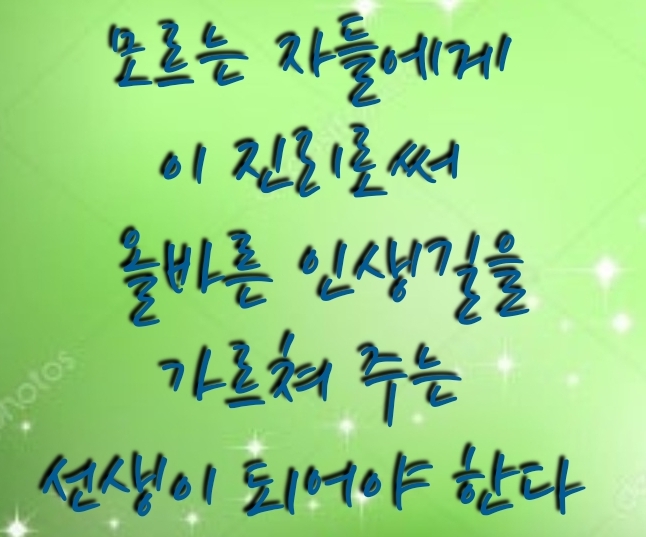 모르는 자들에게
이 진리로써
올바른 인생길을
가르쳐 주는
선생이 되어야 한다
photos